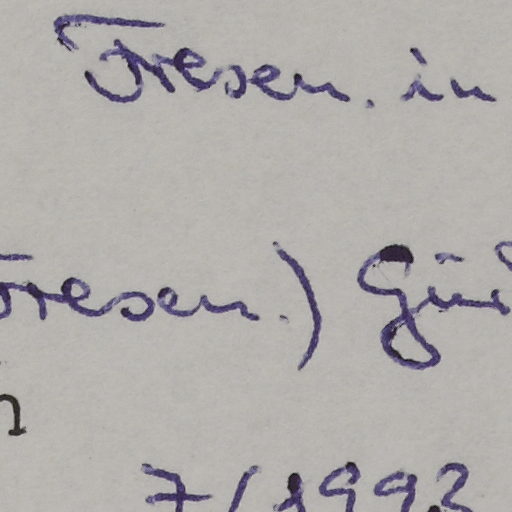 Fresen. in
Fresen.)
7/1993